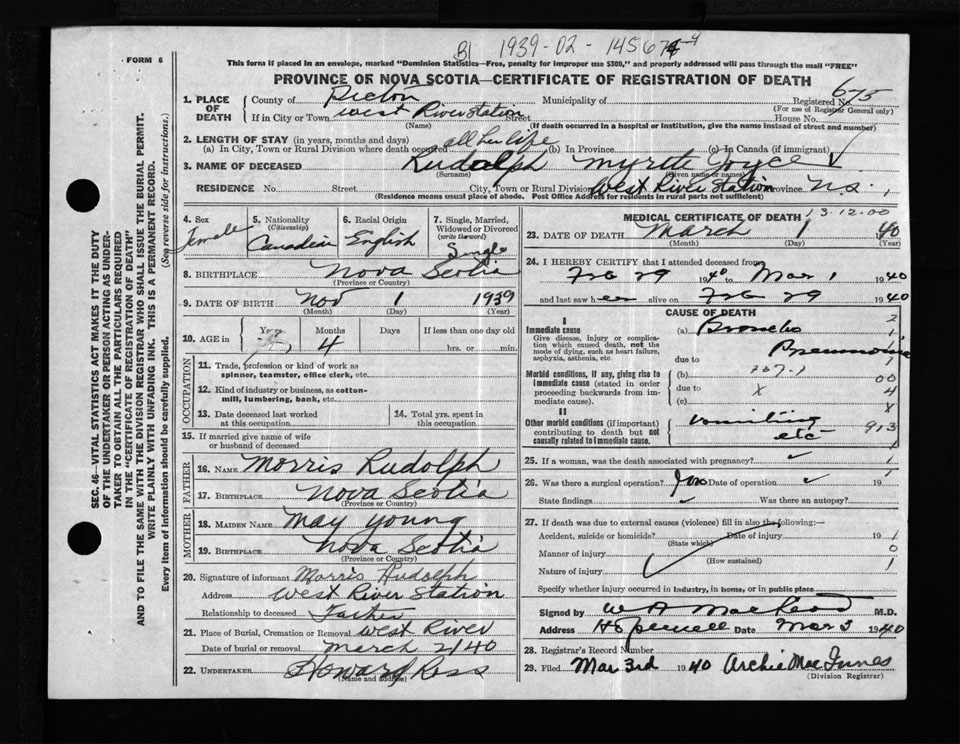 B1 1939-02-145674
FORM 6
This form if placed in an envelope, marked "Dominion Statistics—Free, penalty for improper use $300," and properly addressed will pass through the mail "FREE"
PROVINCE OF NOVA SCOTIA—CERTIFICATE OF REGISTRATION OF DEATH
675
1. PLACE OF DEATH County of Pictou Municipality of Registered No.
(For use of Registrar General only)
If in City or Town West River Station Street House No.
(Name) (If death occurred in a hospital or institution, give the name instead of street and number)
2. LENGTH OF STAY (in years, months and days)
(a) In City, Town or Rural Division where death occurred all her life (b) In Province (c) In Canada (if immigrant)
3. NAME OF DECEASED Rudolph Myrtle Joyce
(Surname) (Given name or names)
RESIDENCE No. Street City, Town or Rural Division West River Station Province N.S.
(Residence means usual place of abode. Post Office Address for residents in rural parts not sufficient)
4. Sex Female
5. Nationality (Citizenship) Canadian
6. Racial Origin English
7. Single, Married, Widowed or Divorced (write the word) Single
8. BIRTHPLACE Nova Scotia
(Province or Country)
9. DATE OF BIRTH Nov 1 1939
(Month) (Day) (Year)
10. AGE in Years Months 4 Days If less than one day old
hrs. or min.
OCCUPATION
11. Trade, profession or kind of work as spinner, teamster, office clerk, etc.
12. Kind of industry or business, as cotton-mill, lumbering, bank, etc.
13. Date deceased last worked at this occupation
14. Total yrs. spent in this occupation
15. If married give name of wife or husband of deceased
FATHER
16. NAME Morris Rudolph
17. BIRTHPLACE Nova Scotia
(Province or Country)
MOTHER
18. MAIDEN NAME May Young
19. BIRTHPLACE Nova Scotia
(Province or Country)
20. Signature of informant Morris Rudolph
Address West River Station
Relationship to deceased Father
21. Place of Burial, Cremation or Removal West River
Date of burial or removal March 2/40
22. UNDERTAKER Howard Ross
(Name and address)
MEDICAL CERTIFICATE OF DEATH 13.12.00
23. DATE OF DEATH March 1 1940
(Month) (Day) (Year)
24. I HEREBY CERTIFY that I attended deceased from
Feb 29 1940 to Mar 1 1940
and last saw her alive on Feb 29 1940
CAUSE OF DEATH
I
Immediate cause (a) Broncho
Give disease, injury or complication which caused death, not the mode of dying, such as heart failure, asphyxia, asthenia, etc
Pneumonia
due to
Morbid conditions, if any, giving rise to immediate cause (stated in order proceeding backwards from immediate cause).
(b) 107-1
due to x
(c)
II
Other morbid conditions (if important) contributing to death but not causally related to immediate cause.
Vomiting
etc
913
25. If a woman, was the death associated with pregnancy?
26. Was there a surgical operation? Date of operation 19
State findings Was there an autopsy?
27. If death was due to external causes (violence) fill in also the following:—
Accident, suicide or homicide? Date of injury 19
(State which)
Manner of injury
(How sustained)
Nature of injury
Specify whether injury occurred in industry, in home, or in public place.
Signed by W A MacLeod M.D.
Address Hopewell Date Mar 3 1940
28. Registrar's Record Number
29. Filed Mar 3rd 1940 Archie MacInnes
(Division Registrar)
SEC. 46—VITAL STATISTICS ACT MAKES IT THE DUTY
OF THE UNDERTAKER OR PERSON ACTING AS UNDER-
TAKER TO OBTAIN ALL THE PARTICULARS REQUIRED
IN THE "CERTIFICATE OF REGISTRATION OF DEATH"
AND TO FILE THE SAME WITH THE DIVISION REGISTRAR WHO SHALL ISSUE THE BURIAL PERMIT.
WRITE PLAINLY WITH UNFADING INK. THIS IS A PERMANENT RECORD.
Every item of information should be carefully supplied. (See reverse side for instructions.)